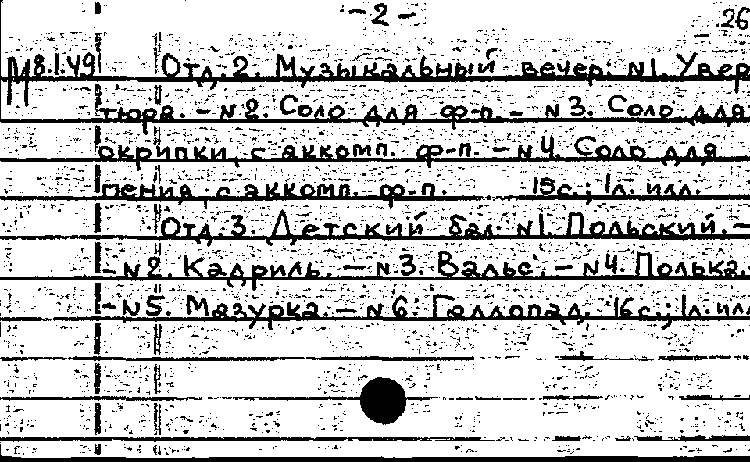 - 2 -
26
М 8.I.49 Отд. 2. Музыкальный вечер: N1. Увер
тюра. - N 2. Соло для ф-п. - N 3. Соло для
скрипки, с аккомп. ф-п. - N 4. Соло для
пения, с аккомп. ф-п. 15с.; 1л. илл.
Отд. 3. Детский бал. N1. Польский. -
- N 2. Кадриль. - N 3. Вальс. - N 4. Полька.
- N 5. Мазурка. - N 6. Галлопад. 16с.; 1л. илл